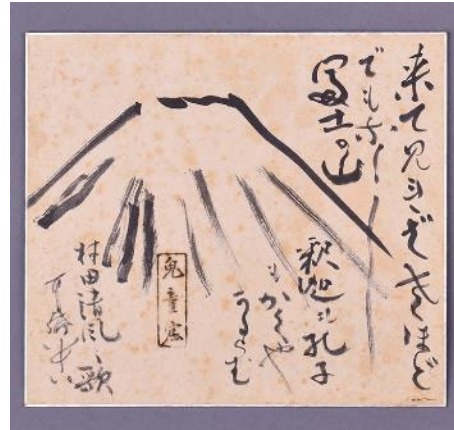 来て見ればさほど
でもなし
冨士の山
釈迦も孔子
もかくや
あるらむ
村田清風の歌